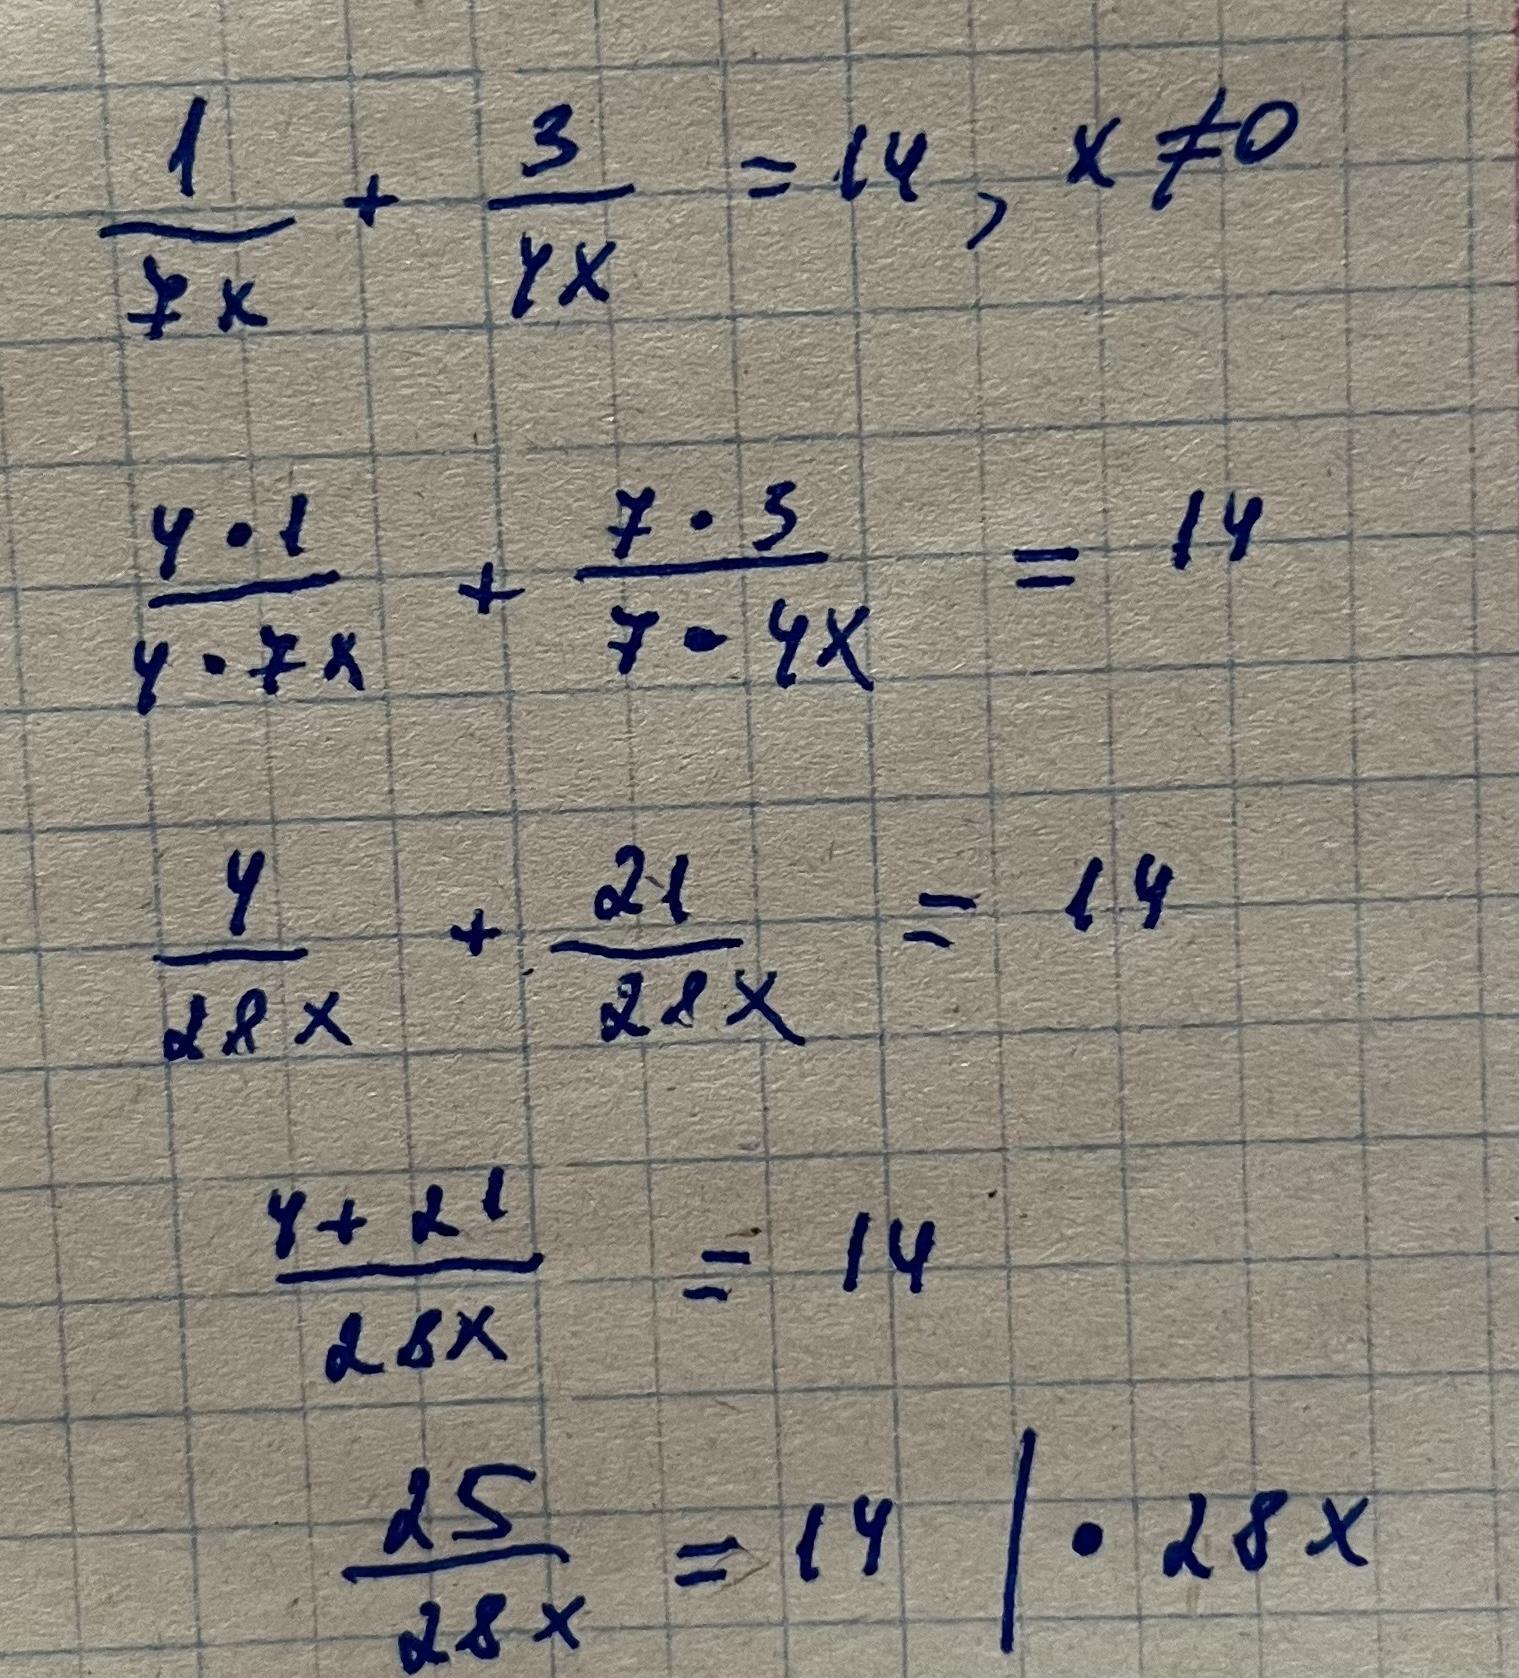 1/7x + 3/4x = 14, x ≠ 0
4·1/4·7x + 7·3/7·4x = 14
4/28x + 21/28x = 14
4+21/28x = 14
25/28x = 14 | · 28x